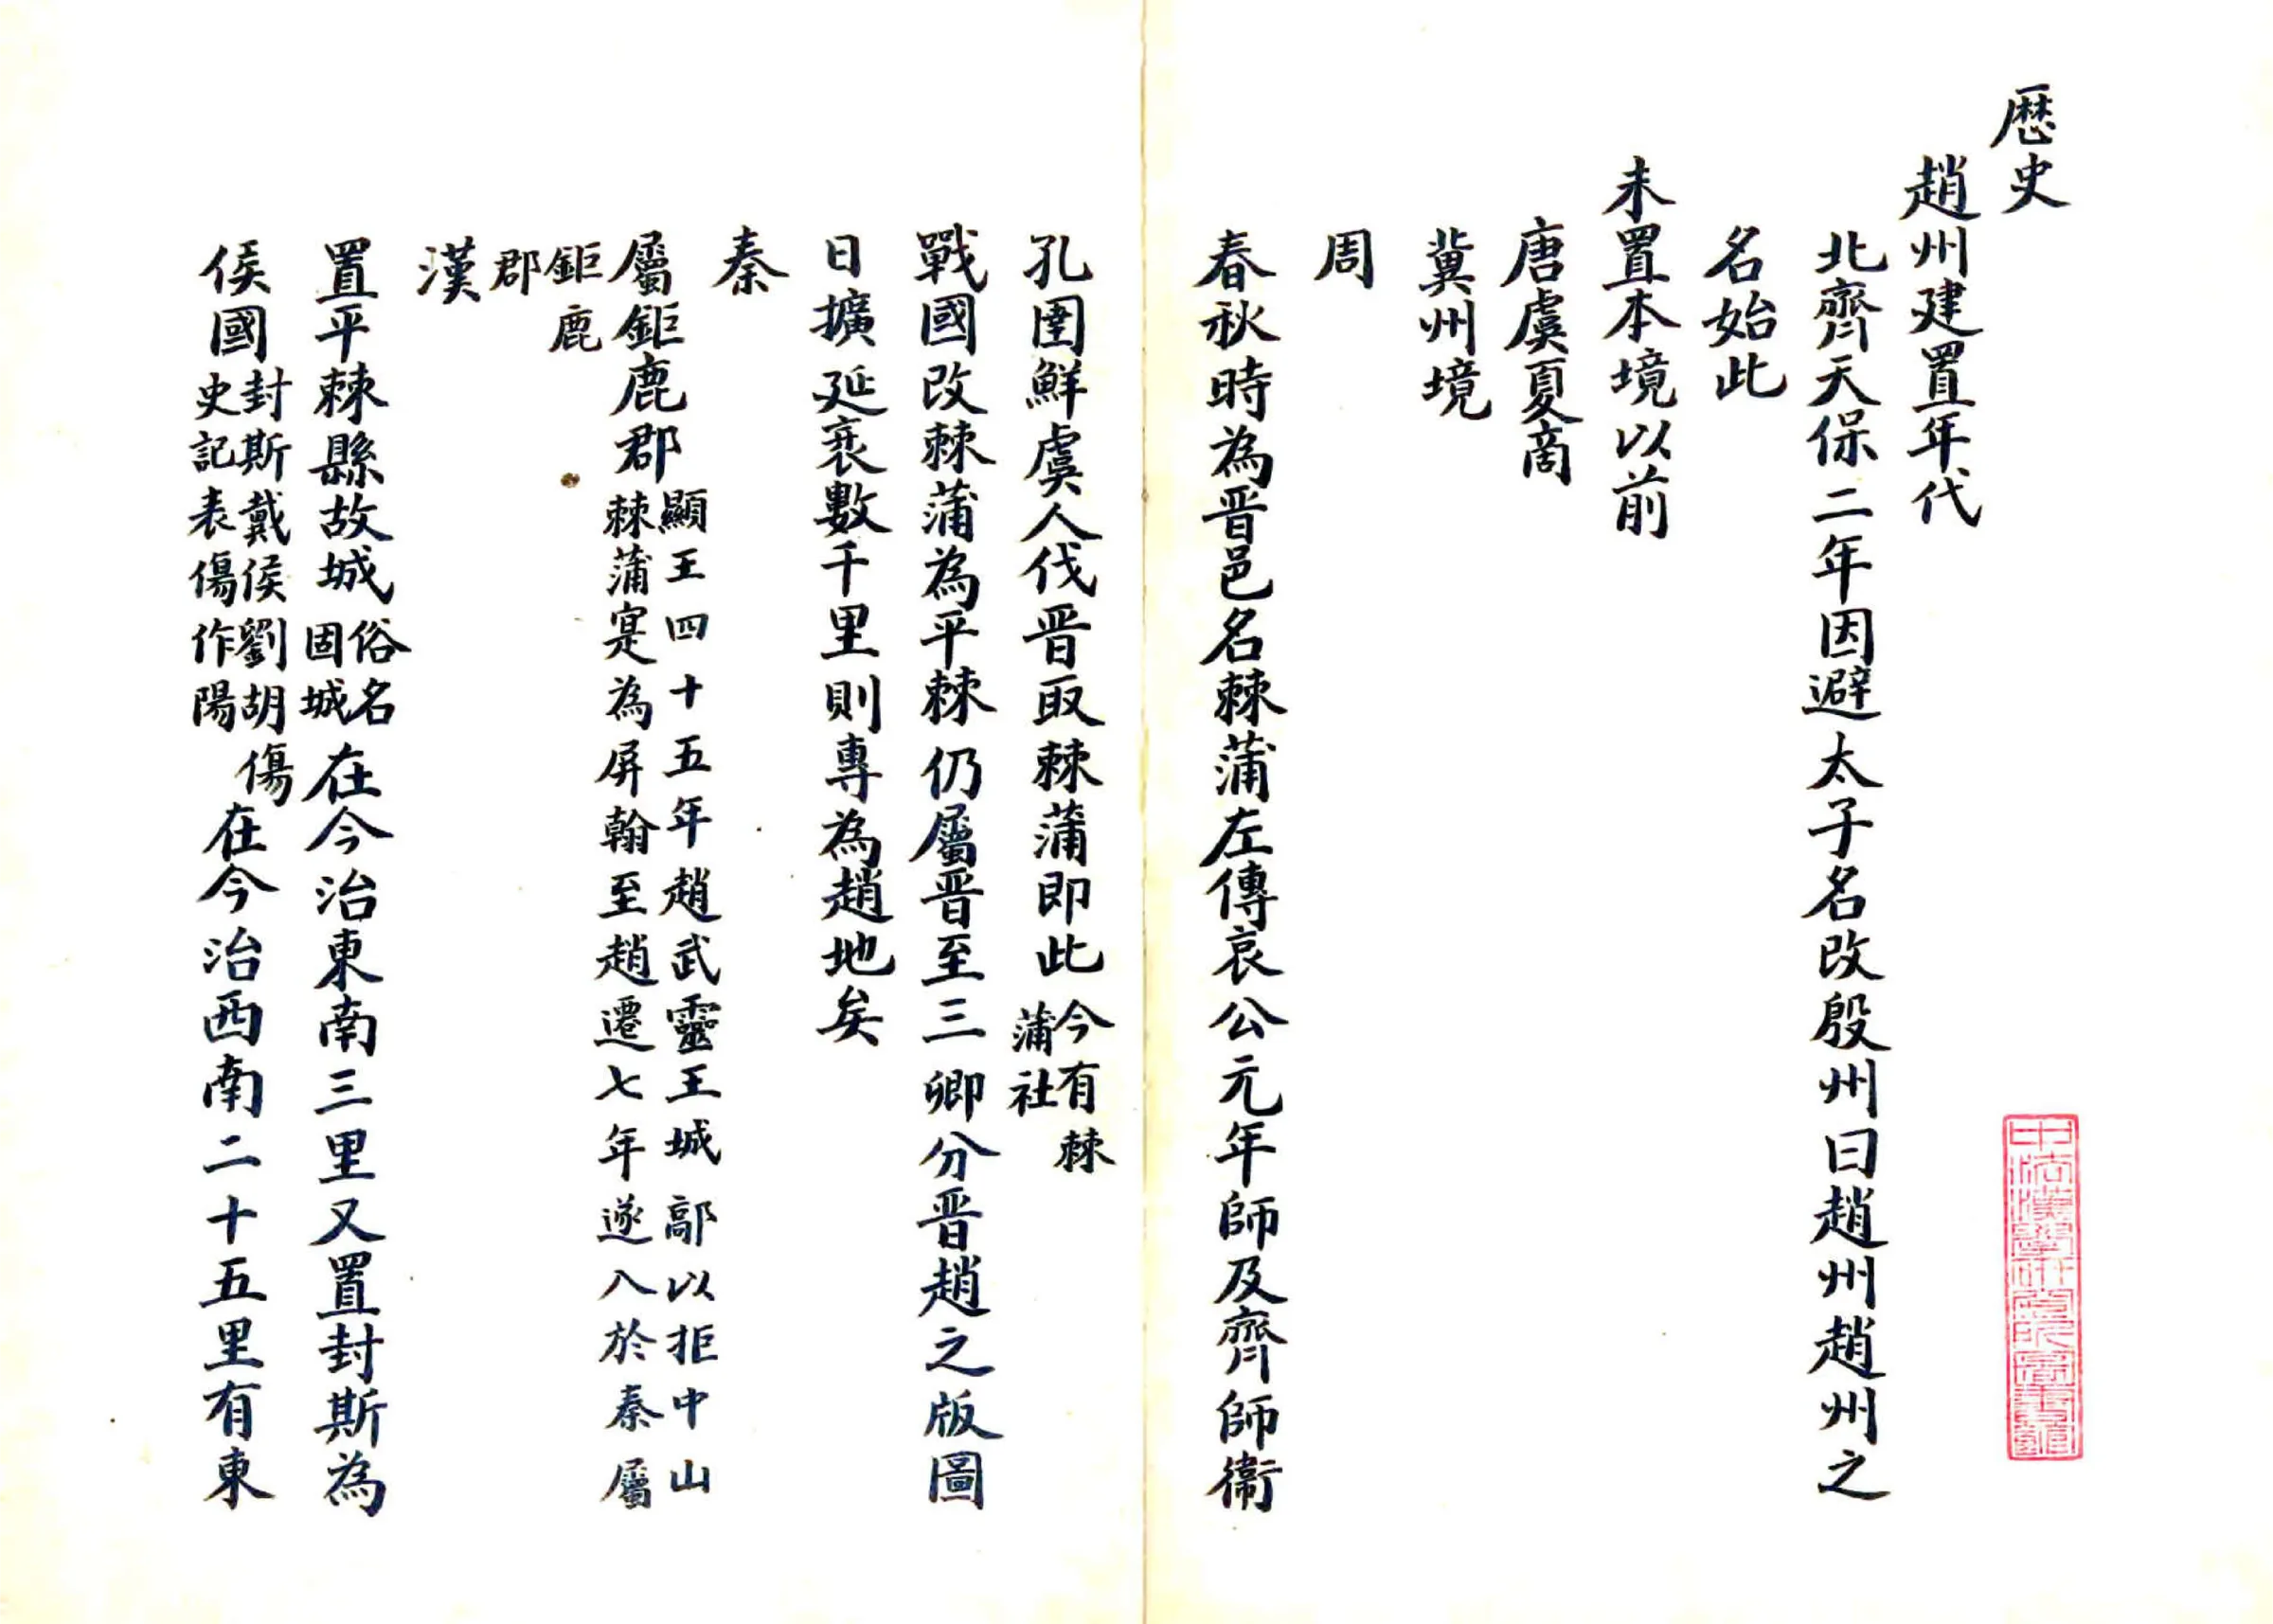 歷史
趙州建置年代
北齊天保二年因避太子名改殷州曰趙州趙州之
名始此
未置本境以前
唐虞夏商
冀州境
周
春秋時為晋邑名棘蒲左傳哀公元年師及齊師衞
孔圉鮮虞人伐晋取棘蒲即此今有棘
蒲社
戰國改棘蒲為平棘仍屬晋至三卿分晋趙之版圖
日擴延袤數千里則專為趙地矣
秦
屬鉅鹿郡顯王四十五年趙武靈王城鄗以拒中山
棘蒲寔為屏翰至趙遷七年遂入於秦屬
鉅鹿
郡
漢
置平棘縣故城俗名
固城在今治東南三里又置封斯為
侯國封斯戴侯劉胡傷
史記表傷作陽在今治西南二十五里有東
中法漢學研究所圖書館